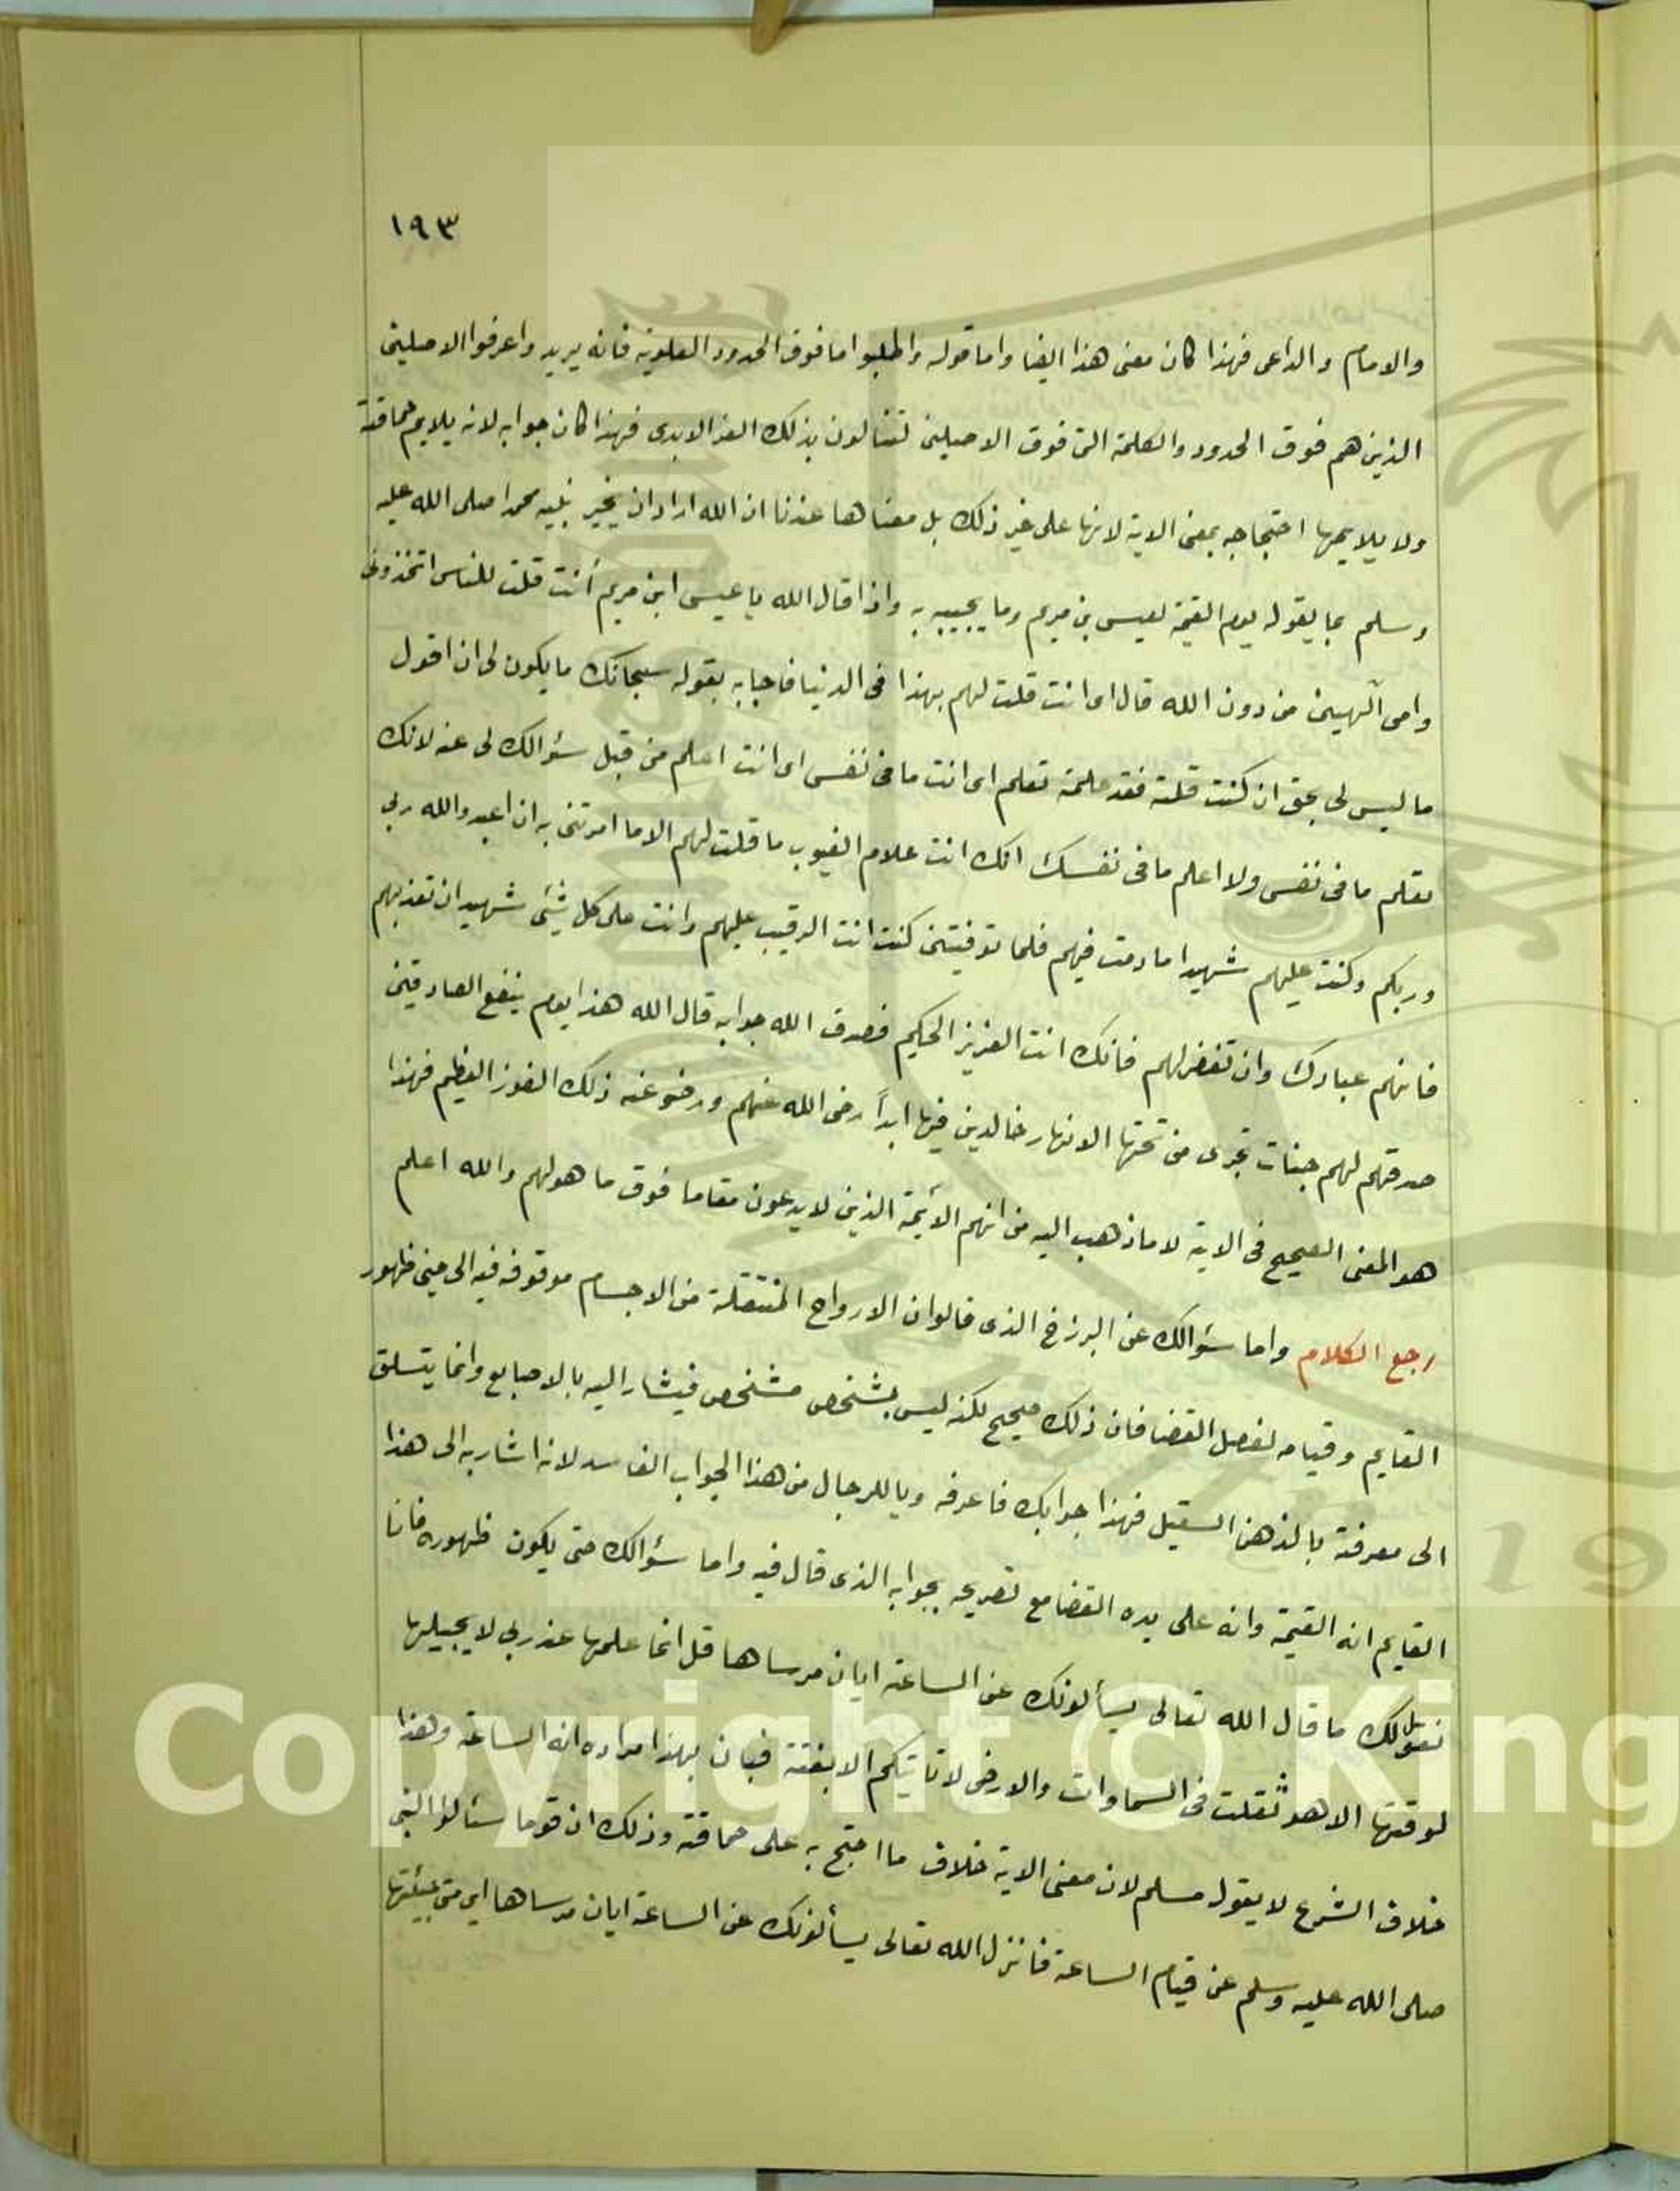 ١٩٣
والامام والداعى فهذا كان معنى هذا ايضا واما قوله واطلبوا ما فوق الحدود العلوية فانه يريد واعرفوا الاصلين
الذين هم فوق الحدود والكلمة التى فوق الاصلين تنالون بذلك العز الابدى فهذا كان جوابه لانه يلايم حماقته
ولا يلايمها احتجاجه بمعنى الاية لانها على غير ذلك بل معناها عندنا ان الله اراد ان يخبر نبيه محمدا صلى الله عليه
وسلم بما يقوله يوم القيمة لعيسى بن مريم وما يجيبه به واذا قال الله يا عيسى ابن مريم أنت قلت للناس اتخذونى
وامى الٓهين من دون الله قال اى انت قلت لهم بهذا فى الدنيا فاجابه بقوله سبحانك ما يكون لى ان اقول
ما ليس لى بحق ان كنت قلته فقد علمته تعلم اى انت ما فى نفسى اى انت اعلم من قبل سئوالك لى عنه لانك
تعلم ما فى نفسى ولا اعلم ما فى نفسك انك انت علام الغيوب ما قلت لهم الا ما امرتنى به ان اعبدوالله ربى
وربكم وكنت عليهم شهيدا ما دمت فيهم فلما توفيتنى كنت انت الرقيب عليهم وانت على كل شئى شهيد ان تعذبهم
فانهم عبادك وان تغفر لهم فانك انت العزيز الحكيم فصدق الله جوابه قال الله هذا يوم ينفع الصادقين
صدقهم لهم جنات تجرى من تحتها الانهار خالدين فيها ابداً رضى الله عنهم ورضو عنه ذلك الفوز العظيم فهذا
هو المعنى الصحيح فى الاية لا ما ذهب اليه من انهم الأئمة الذين لا يدعون مقاما فوق ما هو لهم والله اعلم
رجع الكلام واما سئوالك عن البرزخ الذى قالوا ان الارواح المنتقلة من الاجسام موقوفه فيه الى حين ظهور
القايم وقيامه لفصل القضا فان ذلك صحيح لكنه ليس بشخص مشخص فيشار اليه بالاصابع وانما يتسلق
الى معرفته بالذهن الصقيل فهذا جوابك فاعرفه ويا للرجال من هذا الجواب الفاسد لانه اشار به الى هذا
القايم انه القيمة وانه على يده القضا مع تصريحه بجوابه الذى قال فيه واما سئوالك متى يكون ظهوره فانا
نقول لك ما قال الله تعالى يسألونك عن الساعة ايان مرساها قل انما علمها عند ربى لا يجليها
لوقتها الا هو ثقلت فى السماوات والارض لا تاتيكم الا بغتة فبان بهذا مراده انه الساعة وهذا
خلاف الشرع لا يقوله مسلم لان معنى الاية خلاف ما احتج به على حماقته وذلك ان قوما سئالوا النبى
صلى الله عليه وسلم عن قيام الساعة فانزل الله تعالى يسألونك عن الساعة ايان مرساها اى متى
Copyright © King
19